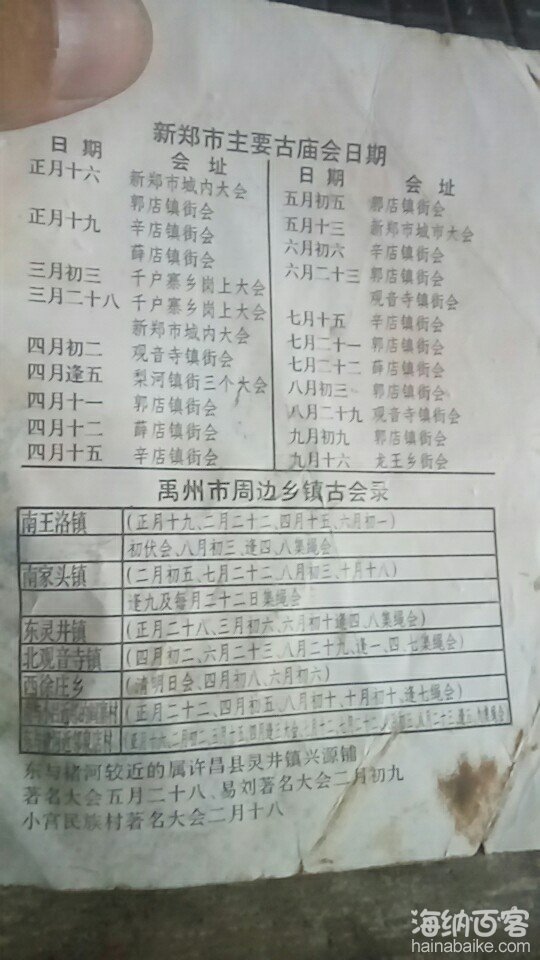 新郑市主要古庙会日期
日期 会址
正月十六 新郑市城内大会
郭店镇街会
正月十九 辛店镇街会
薛店镇街会
三月初三 千户寨乡岗上大会
三月二十八 千户寨乡岗上大会
新郑市城内大会
四月初二 观音寺镇街会
四月逢五 梨河镇街三个大会
四月十一 郭店镇街会
四月十二 薛店镇街会
四月十五 辛店镇街会
日期 会址
五月初五 郭店镇街会
五月十三 新郑市城市大会
六月初六 辛店镇街会
六月二十三 郭店镇街会
观音寺镇街会
七月十五 辛店镇街会
七月二十一 郭店镇街会
七月二十二 薛店镇街会
八月初三 郭店镇街会
八月二十九 观音寺镇街会
九月初九 郭店镇街会
九月十六 龙王乡街会
禹州市周边乡镇古会录
南王洛镇 (正月十九、二月二十二、四月十五、六月初一)
初伏会、八月初三、逢四、八集绳会
南家头镇 (二月初五、七月二十二、八月初三、十月十八)
逢九及每月二十二日集绳会
东灵井镇 (正月二十八、三月初六、六月初十逢四、八集绳会)
北观音寺镇 (四月初二、六月二十三、八月二十九、逢一、四、七集绳会)
西徐庄乡 (清明日会、四月初八、六月初六)
村 (正月二十二、四月初五、八月初十、十月初十、逢七绳会)
东与褚河较近的属许昌县灵井镇兴源铺
著名大会五月二十八、易刘著名大会二月初九
小宫民族村著名大会二月十八
海纳百客
hainabaike.com